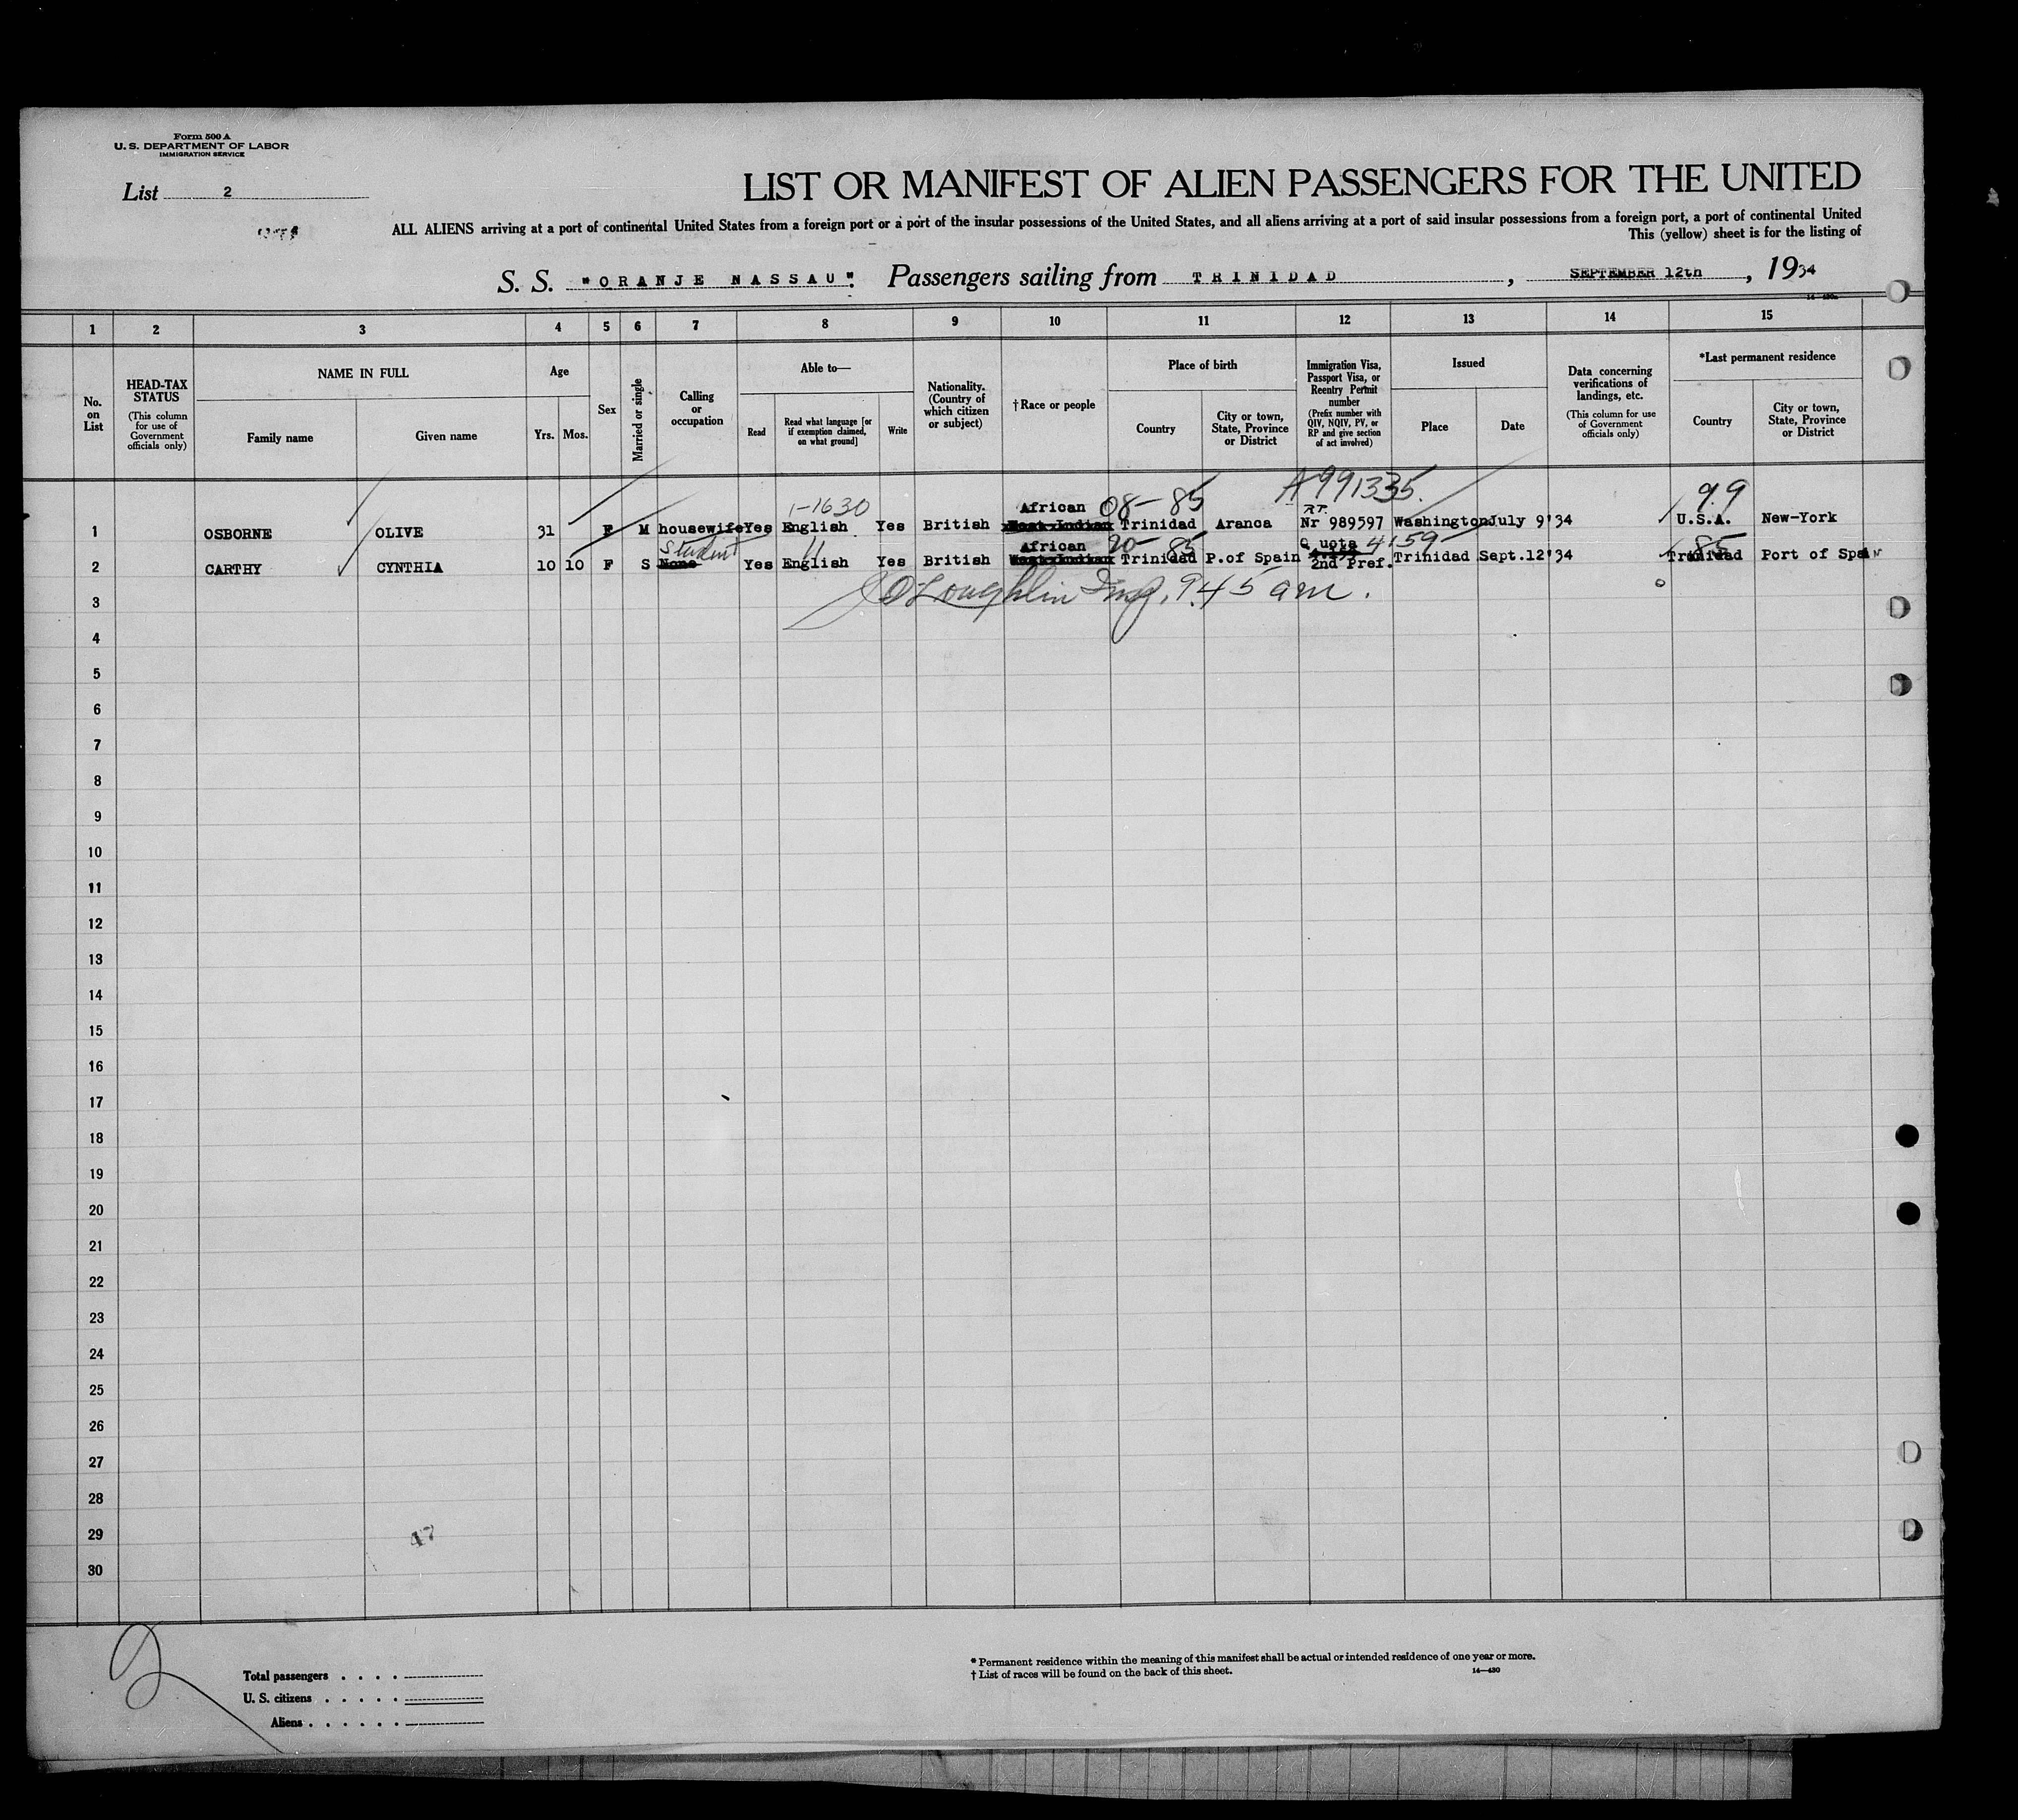 Form 500 A
U. S. DEPARTMENT OF LABOR
IMMIGRATION SERVICE
List 2
LIST OR MANIFEST OF ALIEN PASSENGERS FOR THE UNITED
ALL ALIENS arriving at a port of continental United States from a foreign port or a port of the insular possessions of the United States, and all aliens arriving at a port of said insular possessions from a foreign port, a port of continental United
This (yellow) sheet is for the listing of
S. S. "ORANJE NASSAU". Passengers sailing from TRINIDAD, SEPTEMBER 12th, 1934
1 2 3 4 5 6 7 8 9 10 11 12 13 14 15
No. on List
HEAD-TAX STATUS
(This column for use of Government officials only)
NAME IN FULL
Family name
Given name
Age
Yrs.
Mos.
Sex
Married or single
Calling or occupation
Able to—
Read
Read what language [or if exemption claimed, on what ground]
Write
Nationality. (Country of which citizen or subject)
†Race or people
Place of birth
Country
City or town, State, Province or District
Immigration Visa, Passport Visa, or Reentry Permit number
(Prefix number with QIV, NQIV, PV, or RP and give section of act involved)
Issued
Place
Date
Data concerning verifications of landings, etc.
(This column for use of Government officials only)
*Last permanent residence
Country
City or town, State, Province or District
1-1630 African 08-85 A991335. 99
1 OSBORNE OLIVE 31 F M housewife Yes English Yes British West Indian Trinidad Aranca RP. Nr 989597 Washington July 9'34 U.S.A. New-York
Student 11 African 20-85 Quota 4159 85
2 CARTHY CYNTHIA 10 10 F S None Yes English Yes British West Indian Trinidad P.of Spain 2nd Pref. Trinidad Sept.12'34 Trinidad Port of Spain
3 O'Loughlin Insp. 9.45 am.
4
5
6
7
8
9
10
11
12
13
14
15
16
17
18
19
20
21
22
23
24
25
26
27
28
29
47
30
2
Total passengers
U. S. citizens
Aliens
* Permanent residence within the meaning of this manifest shall be actual or intended residence of one year or more.
† List of races will be found on the back of this sheet. 14—430